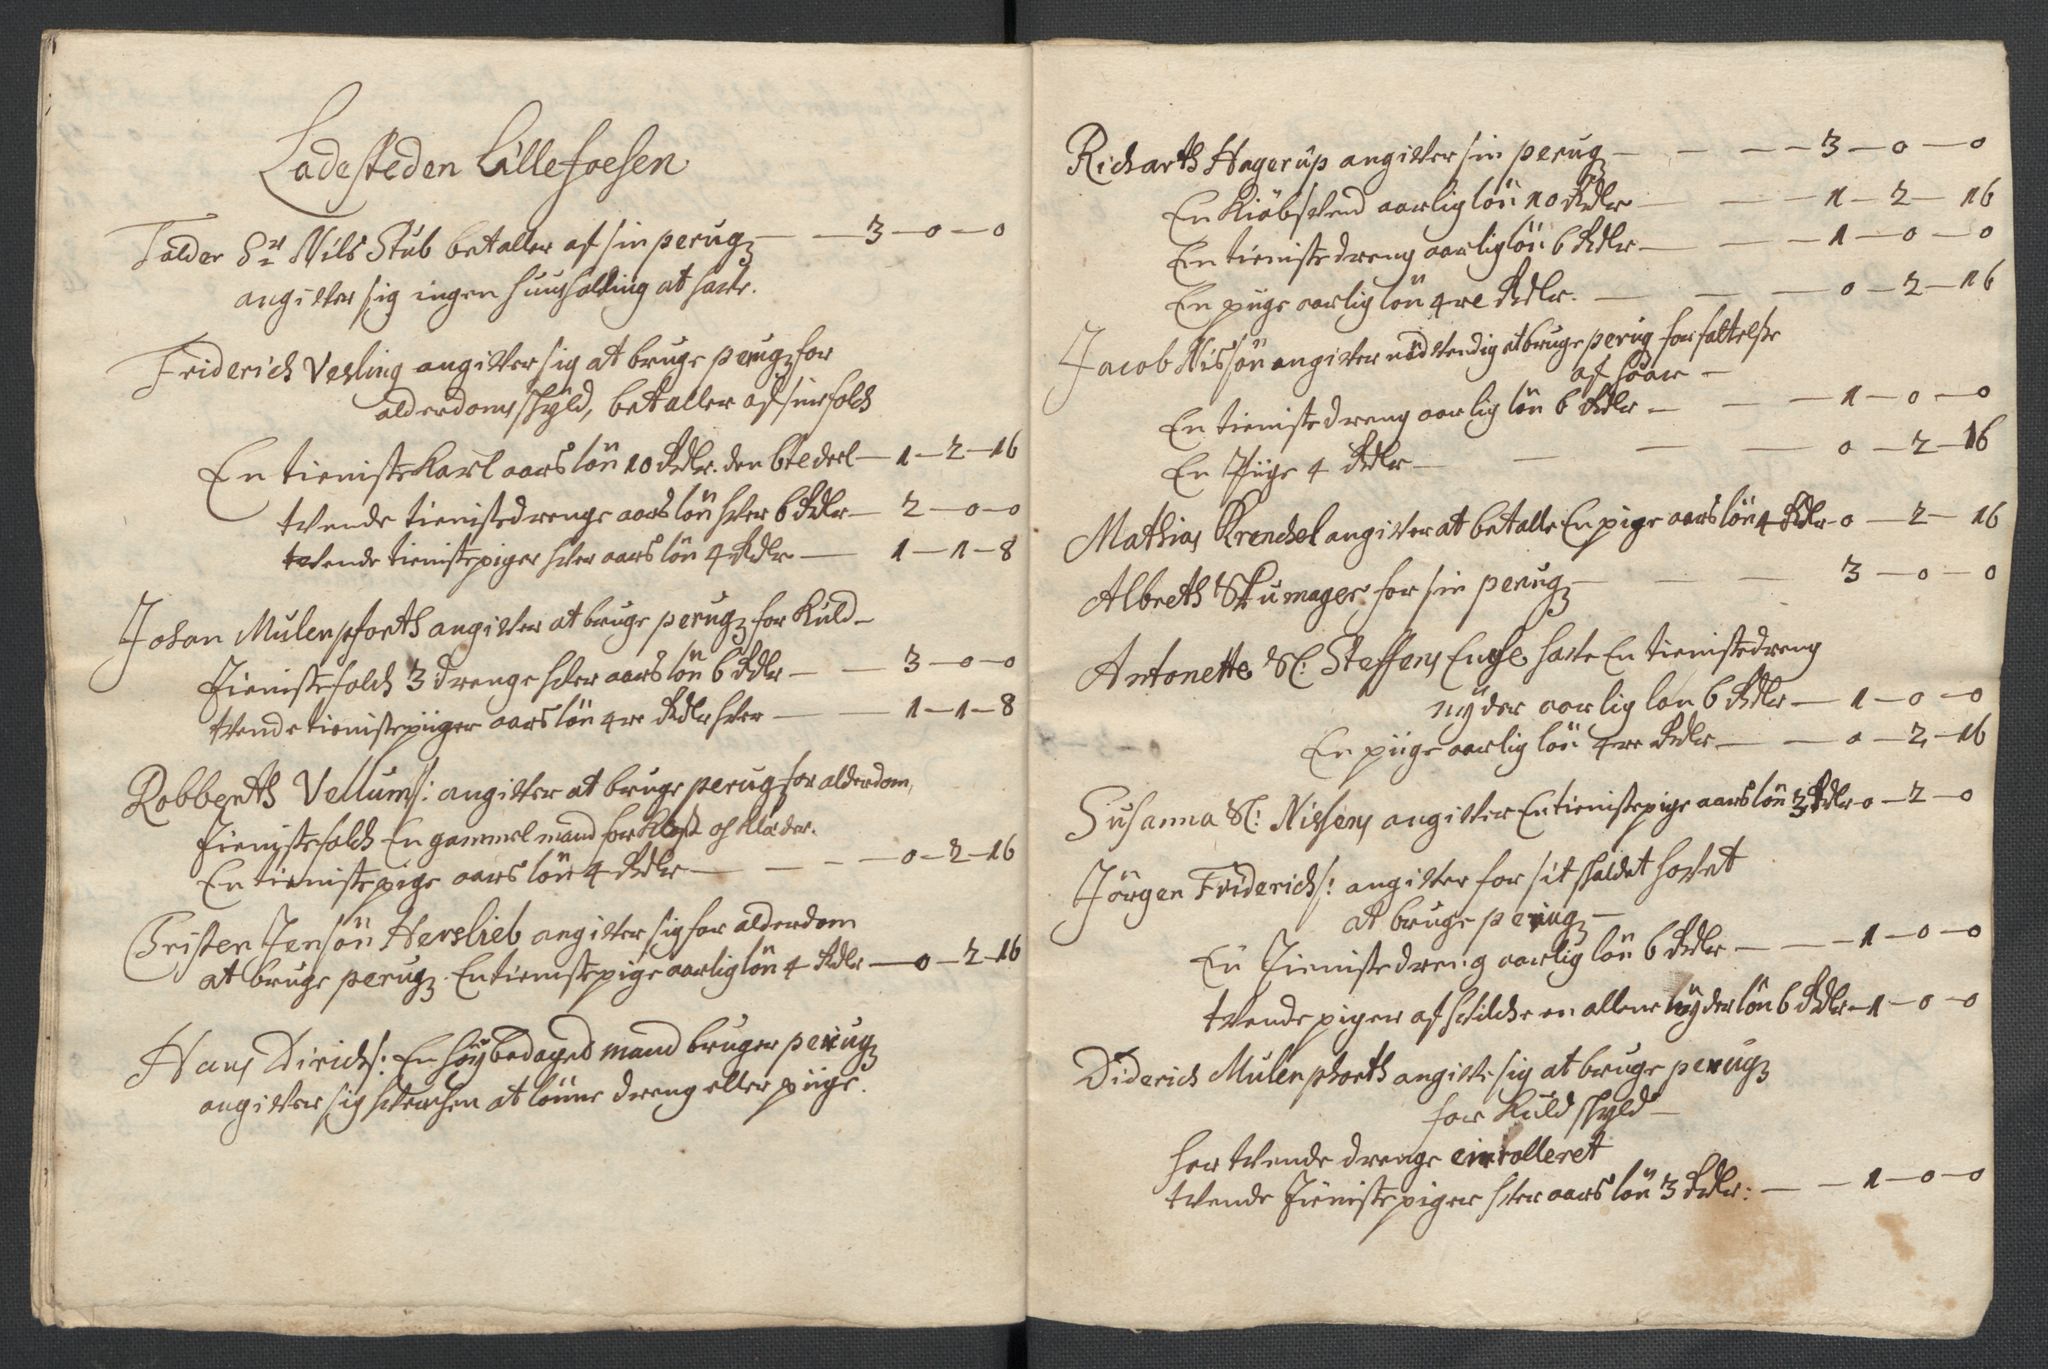 Ladesteden Lillefoesen
Tolder Sr Nils Stub betaller af sin perug — — 3 — 0 — 0
angifver sig ingen huusholding at hafve.
Friderich Vesling angifver sig at bruge perug for
alderdoms skyld, betaller af sine folch
En tieniste Karl aarsløn 10 Rdlr. den 6te deel — 1 — 2 — 16
tvende tienistedrenge aarsløn hver 6 Rdlr — 2 — 0 — 0
tvende tienistepiger hver aarsløn 4 Rdlr — 1 — 1 — 8
Johan Mulenpforth angifver at bruge perug for Kuld —
Tieniste folch 3 drenge hver aarsløn 6 Rdlr — — 3 — 0 — 0
tvende tienistepiiger aarsløn 4re Rdlr hver — — 1 — 1 — 8
Robberth Vellums: angifver at bruge perug for alderdom,
Tieniste folch En gammel mand for Kost og Klæder.
En tienistepige aarsløn 4 Rdlr — — — 0 — 2 — 16
Christen Jensøn Herslieb angifver sig for alderdom
at bruge perug. En tienistepige aarlig løn 4 Rdlr — 0 — 2 — 16
Hans Dirichs: En høybedaget mand bruger perug
angifver sig hverchen at lønne dreng eller piige.
Richarth Hagerup angifver sin perug — — — 3 — 0 — 0
En Kiøbsvend aarlig løn 10 Rdlr — — — 1 — 2 — 16
En tienistedreng aarlig løn 6 Rdlr — — — 1 — 0 — 0
En piige aarlig løn 4re Rdlr. — — — 0 — 2 — 16
Jacob Nissøn angifver nødvendig at bruge perug for fattelse
af haar —
En tienistedreng aarlig løn 6 Rdlr — — — 1 — 0 — 0
En Piige 4 Rdlr — — — — 0 — 2 — 16
Mathias Krenchel angifver at betalle En pige aarsløn 4 Rdlr — 0 — 2 — 16
Albreth Skumager for sin perug — — — 3 — 0 — 0
Antonette Sl: Steffens Enge hafve En tienistedreng
nyder aarlig løn 6 Rdlr — 1 — 0 — 0
En piige aarlig løn 4re Rdlr — — 0 — 2 — 16
Susanna Sl: Nissens angifver En tienistepige aarsløn 3 Rdlr 0 — 2 — 0
Jørgen Friderichs: angifver for sit skaldet hofvet
at bruge perug —
En Tienistedreng aarlig løn 6 Rdlr — — — 1 — 0 — 0
tvende piger af hvilche en allene nyder løn 6 Rdlr — 1 — 0 — 0
Diderich Mulenphorth angifve sig at bruge perug
for Kuld skyld —
har tvende drenge enrolleret
tvende Tienistepiger hver aarsløn 3 Rdlr: — — 1 — 0 — 0